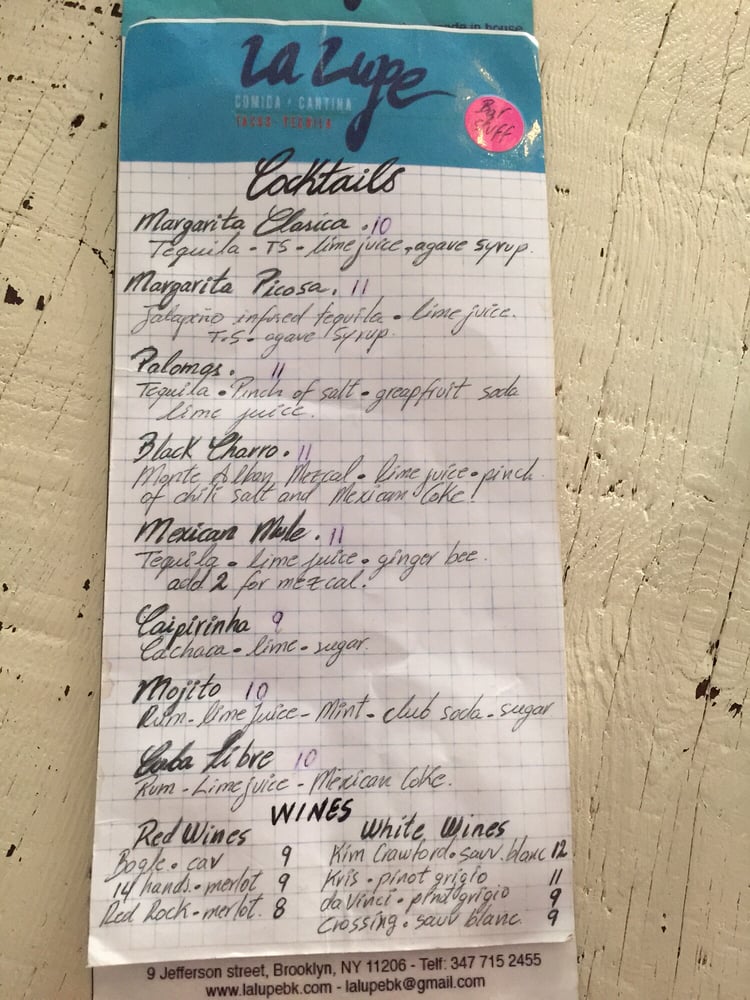 made in house
La Lupe
COMIDA · CANTINA
TACOS · TEQUILA
Bar
stuff
Cocktails
Margarita Clasica . 10
Tequila - TS - lime juice . agave syrup.
Margarita Picosa. 11
Jalapeño infused tequila - lime juice.
T.S - agave syrup.
Palomas. 11
Tequila • Pinch of salt • greapfruit soda
lime juice.
Black Charro. 11
Monte Alban Mezcal - lime juice - pinch
of chili salt and Mexican Coke!
Mexican Mule . 11
Tequila • lime juice • ginger bee.
add 2 for mezcal.
Caipirinha 9
Cachaca - lime - sugar.
Mojito 10
Rum - lime juice - Mint - club soda - sugar
Cuba Libre 10
Rum - Lime juice - Mexican Coke.
WINES
Red Wines
Bogle - cav 9
14 hands - merlot 9
Red Rock - merlot. 8
White Wines
Kim Crawford - sauv. blanc 12
Kris - pinot grigio 11
da Vinci - pinot grigio 9
Crossing - sauv blanc. 9
9 Jefferson street, Brooklyn, NY 11206 - Telf: 347 715 2455
www.lalupebk.com - lalupebk@gmail.com